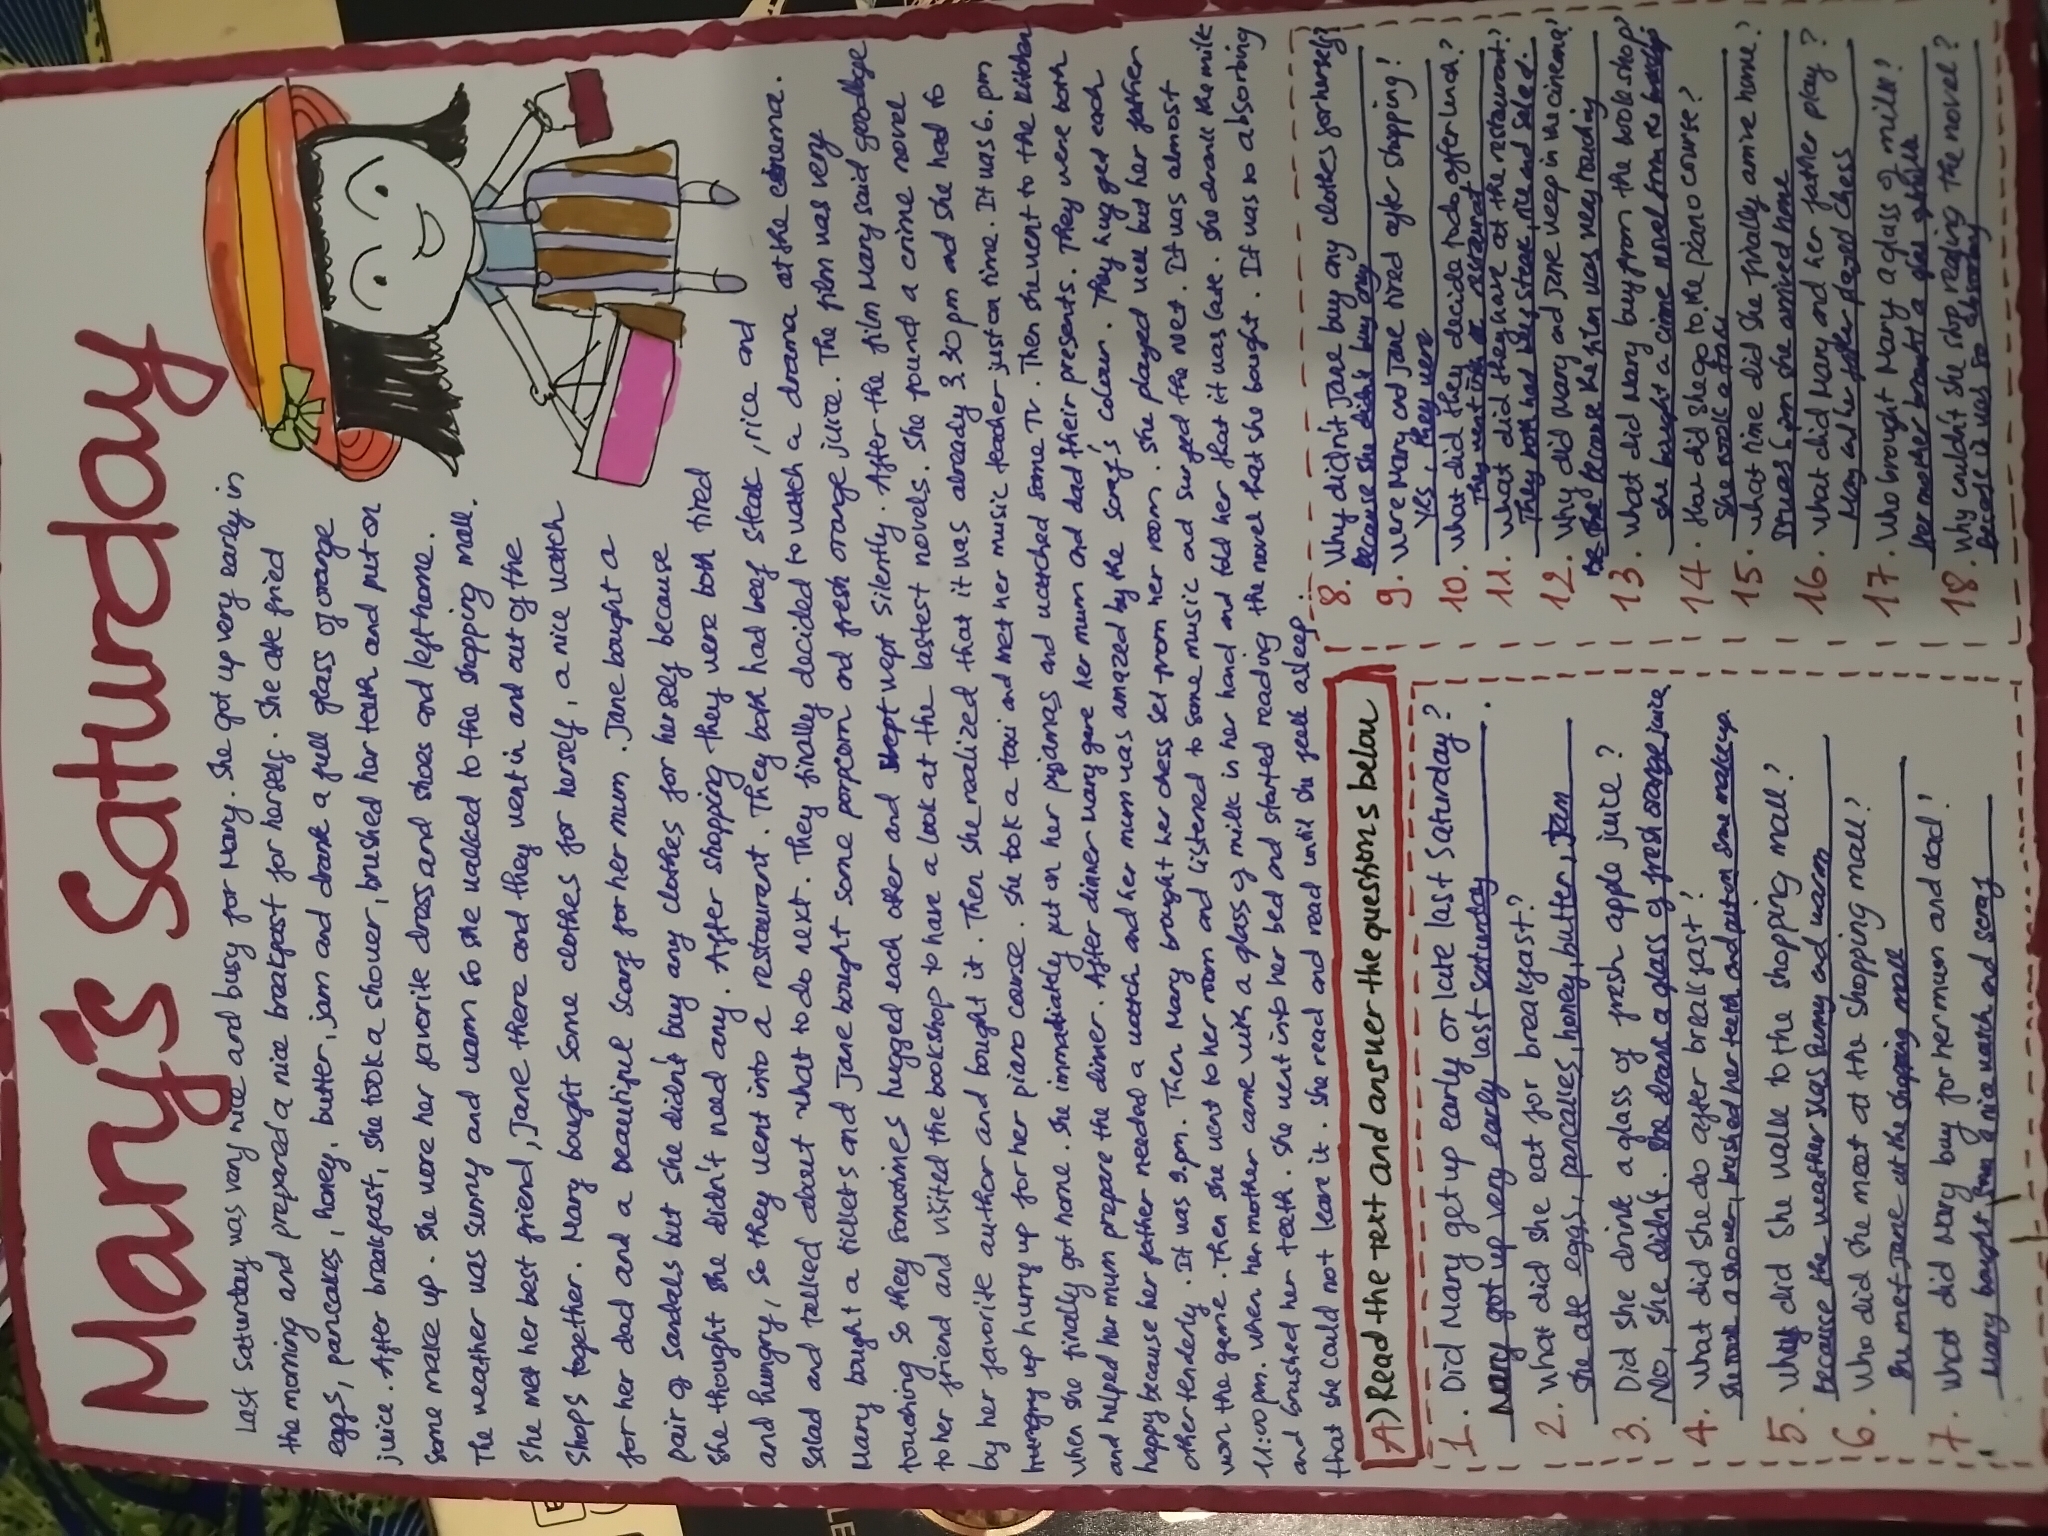 Mary's Saturday
Last Saturday was very nice and busy for Mary. She got up very early in
the morning and prepared a nice breakfast for herself. She ate fried
eggs, pancakes, honey, butter, jam and drank a full glass of orange
juice. After breakfast, she took a shower, brushed her teeth and put on
some make up. She wore her favorite dress and shoes and left home.
The weather was sunny and warm so she walked to the shopping mall.
She met her best friend, Jane there and they went in and out of the
shops together. Mary bought some clothes for herself, a nice watch
for her dad and a beautiful scarf for her mum. Jane bought a
pair of sandals but she didn't buy any clothes for herself because
she thought she didn't need any. After shopping they were both tired
and hungry, so they went into a restaurant. They both had beef steak, rice and
salad and talked about what to do next. They finally decided to watch a drama at the cinema.
Mary bought a tickets and Jane bought some porpcorn and fresh orange juice. The film was very
touching so they sometimes hugged each other and wept silently. After the film Mary said goodbye
to her friend and visited the bookshop to have a look at the lastest novels. She found a crime novel
by her favorite author and bought it. Then she realized that it was already 3.30 pm and she had to
hungry up hurry up for her piano course. She took a taxi and met her music teacher just on time. It was 6. pm
when she finally got home. She immadiately put on her pyjamas and watched some TV. Then she went to the kitchen
and helped her mum prepare the dinner. After dinner Mary gave her mum and dad their presents. They were both
happy because her father needed a watch and her mum was amazed by the scraf's colour. They hugged each
other tenderly. It was 9.pm. Then Mary brought her chess set from her room. She played well but her father
won the game. Then she went to her room and listened to some music and surfed the net. It was almost
11:00 pm. when her mother came with a glass of milk in her hand and told her that it was late. She drank the milk
and brushed her teeth. She went into her bed and started reading the novel that she bought. It was so absorbing
that she could not leave it. She read and read until she feell asleep.
A) Read the text and answer the questions below
1. Did Mary get up early or late last Saturday?
Mary got up very early last saturday.
2. What did she eat for breakfast?
She ate eggs, pancakes, honey, butter, Jam
3. Did she drink a glass of fresh apple juice?
No, she didn't. She drank a glass of fresh orange juice
4. What did she do after breakfast?
She took a shower, brushed her teeth and put on some make up.
5. Why did she walk to the shopping mall?
Because the weather was sunny and warm
6. Who did she meet at the shopping mall?
She met Jane at the shopping mall
7. What did Mary buy for her mum and dad?
Mary bought a nice watch and scraf
8. Why didn't Jane buy any clothes for herself?
Because she didn't buy any
9. Were Mary and Jane tired after shopping?
Yes, they were
10. What did they decide to do after lunch?
They went into a restaurat
11. What did they have at the restaurant?
They both had beef steak, rice and salad.
12. Why did Mary and Jane weep in the cinema?
because the film was very touching
13. What did Mary buy from the book shop?
She bought a crime novel from the bookshop
14. How did she go to the piano course?
She took a taxi
15. What time did she finally arrive home?
It was 6 pm she arrived home
16. What did Mary and her father play?
Mary and her father played chess
17. Who brought Mary a glass of milk?
Her mother brought a glass of milk
18. Why couldn't she stop reading the novel?
Because it was so absorbing